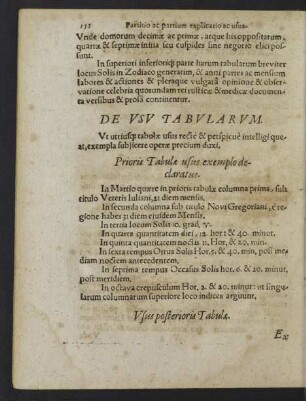 132 Partitio ac partium explicatio ac usus
Vnde domorum decimæ ac primæ, atque his oppositarum,
quartæ & septimæ initia seu cuspides sine negotio elici pos-
sunt.
In superiori inferioriq; parte harum tabularum breviter
locus Solis in Zodiaco generatim, & anni partes ac mensium
labores & actiones & pleraque vulgatâ opinione & obser-
vatione celebria quorundam rei rusticæ & medicæ documen-
ta versibus & prosâ continentur.
DE VSV TABVLARVM.
Vt utriusq; tabulæ usus rectè & perspicuè intelligi que-
at, exempla subjicere operæ precium duxi.
Prioris Tabulæ usus exemplo de-
claratus.
In Martio quære in prioris tabulæ columna prima, sub
titulo Veteris Iuliani, 21 diem mensis,
In secunda columna sub titulo Novi Gregoriani, è re-
gione habes 31 diem ejusdem Mensis,
In tertia locum Solis 10. grad, ♈.
In quarta quantitatem diei, 12. hor: & 40. minut.
In quinta quantitatem noctis 11, Hor, & 20, min.
In sexta tempus Ortus Solis Hor, 5. & 40. min, post me-
diam noctem antecedentem,
In septima tempus Occasus Solis hor. 6. & 20. minut.
post meridiem,
In octava crepusculum Hor. 2. & 20. minut: ut singu-
larum columnarum superiore loco indices arguunt.
Vsus posterioris Tabulæ.
Ex